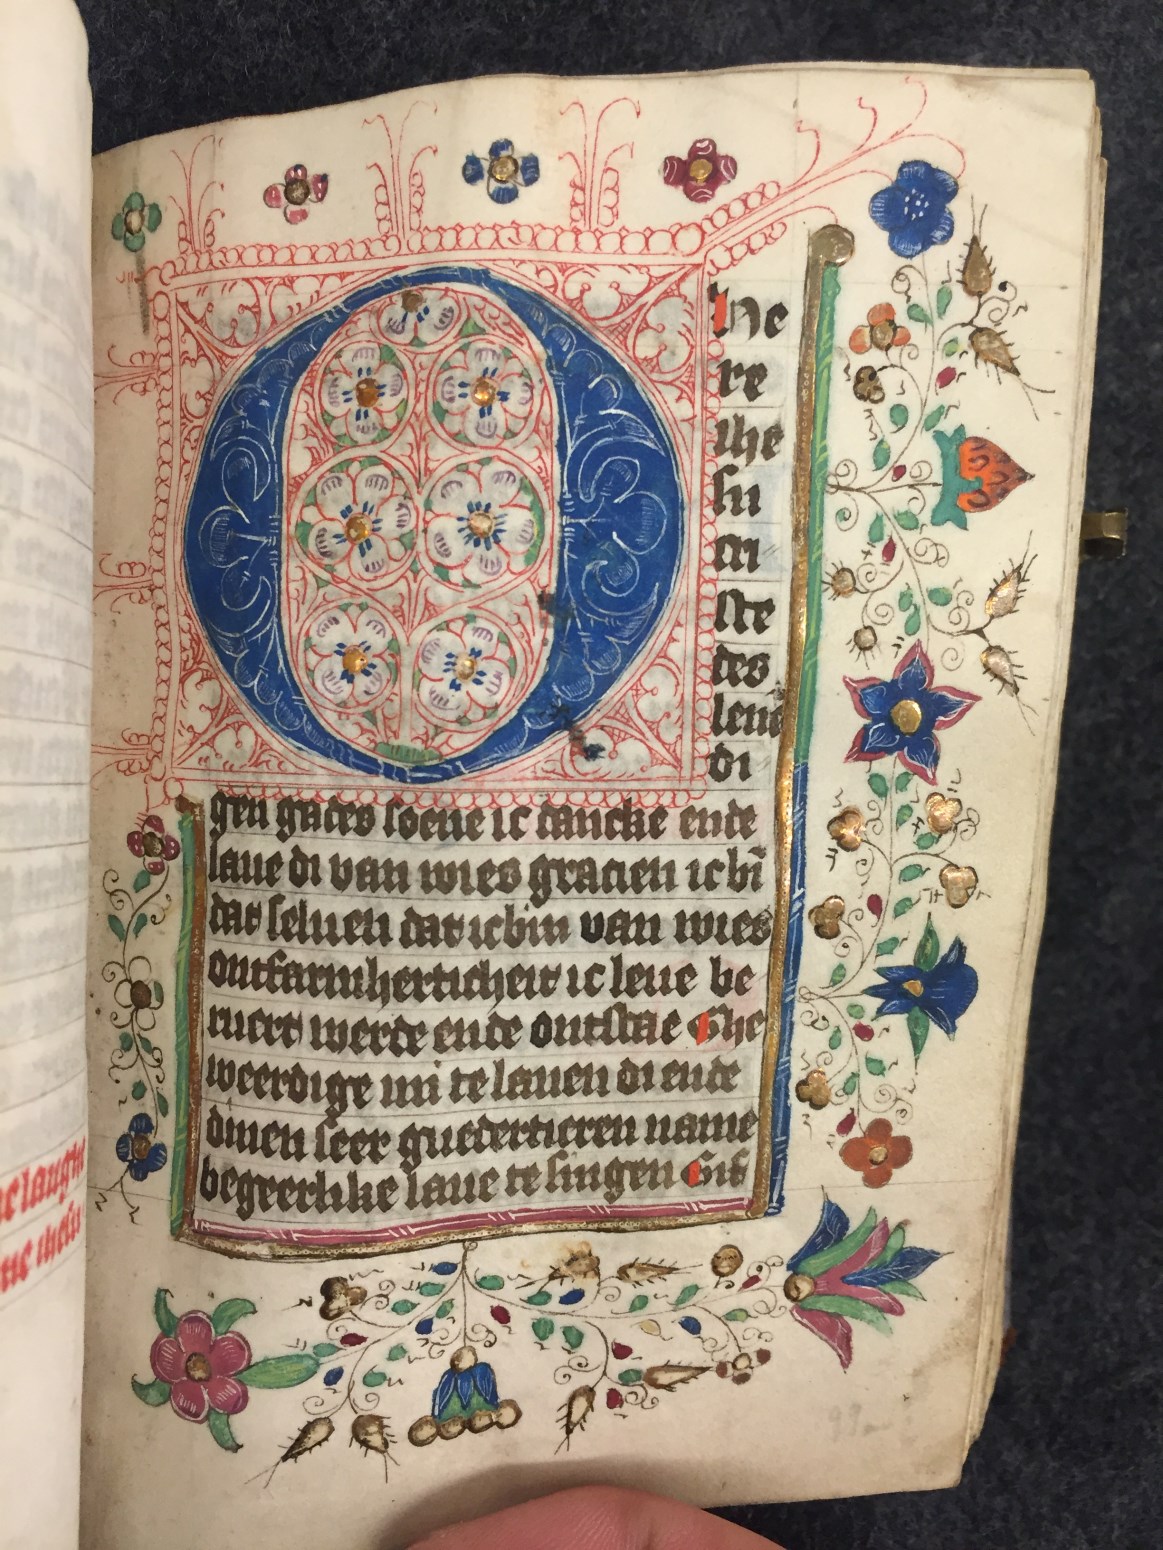 O
He
re
ihe
su
cri
ste
des
leuē
di
gen gades soene ic dancke ende
laue di van wies gracien ic bī
dat seluen dat ic bin van wies
ontfarmherticheit ic leue be
ruert werde ende ontstae Ghe
weerdige mi te lauen di ende
dinen seer guedertieren name
begeerlike laue te singen Gif